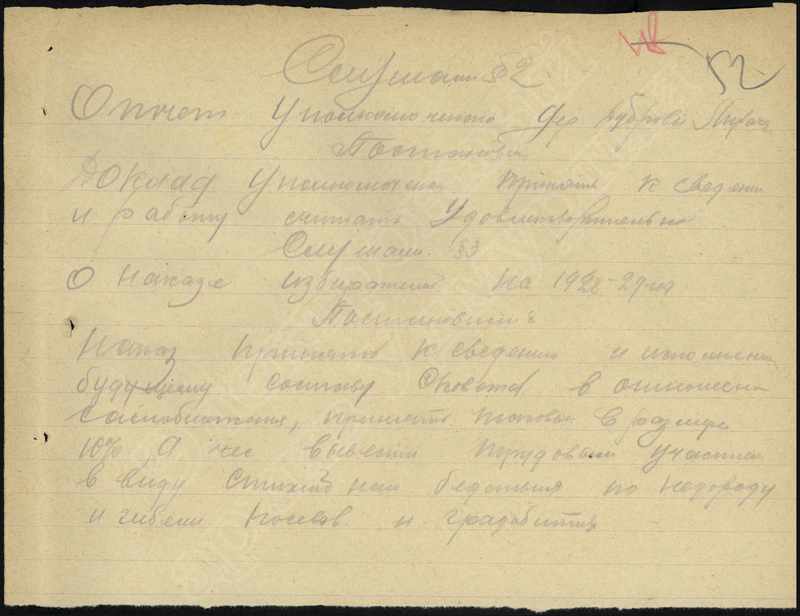 52
Слушали §2.
Отчет Уполномоченого
Постановили
Доклад Уполномоченого принять к сведению
и работу считать Удовлетворительно
Слушали §3
О Наказе избирателей на 1928-29 год
Постановили:
Наказ принять к сведению и исполнению
будущему составу Совета в отношении
принять таковое в размере
10% а лес вывезти трудовым участием
в виду стихийного бедствия по недороду
и гибели посевов и градобития